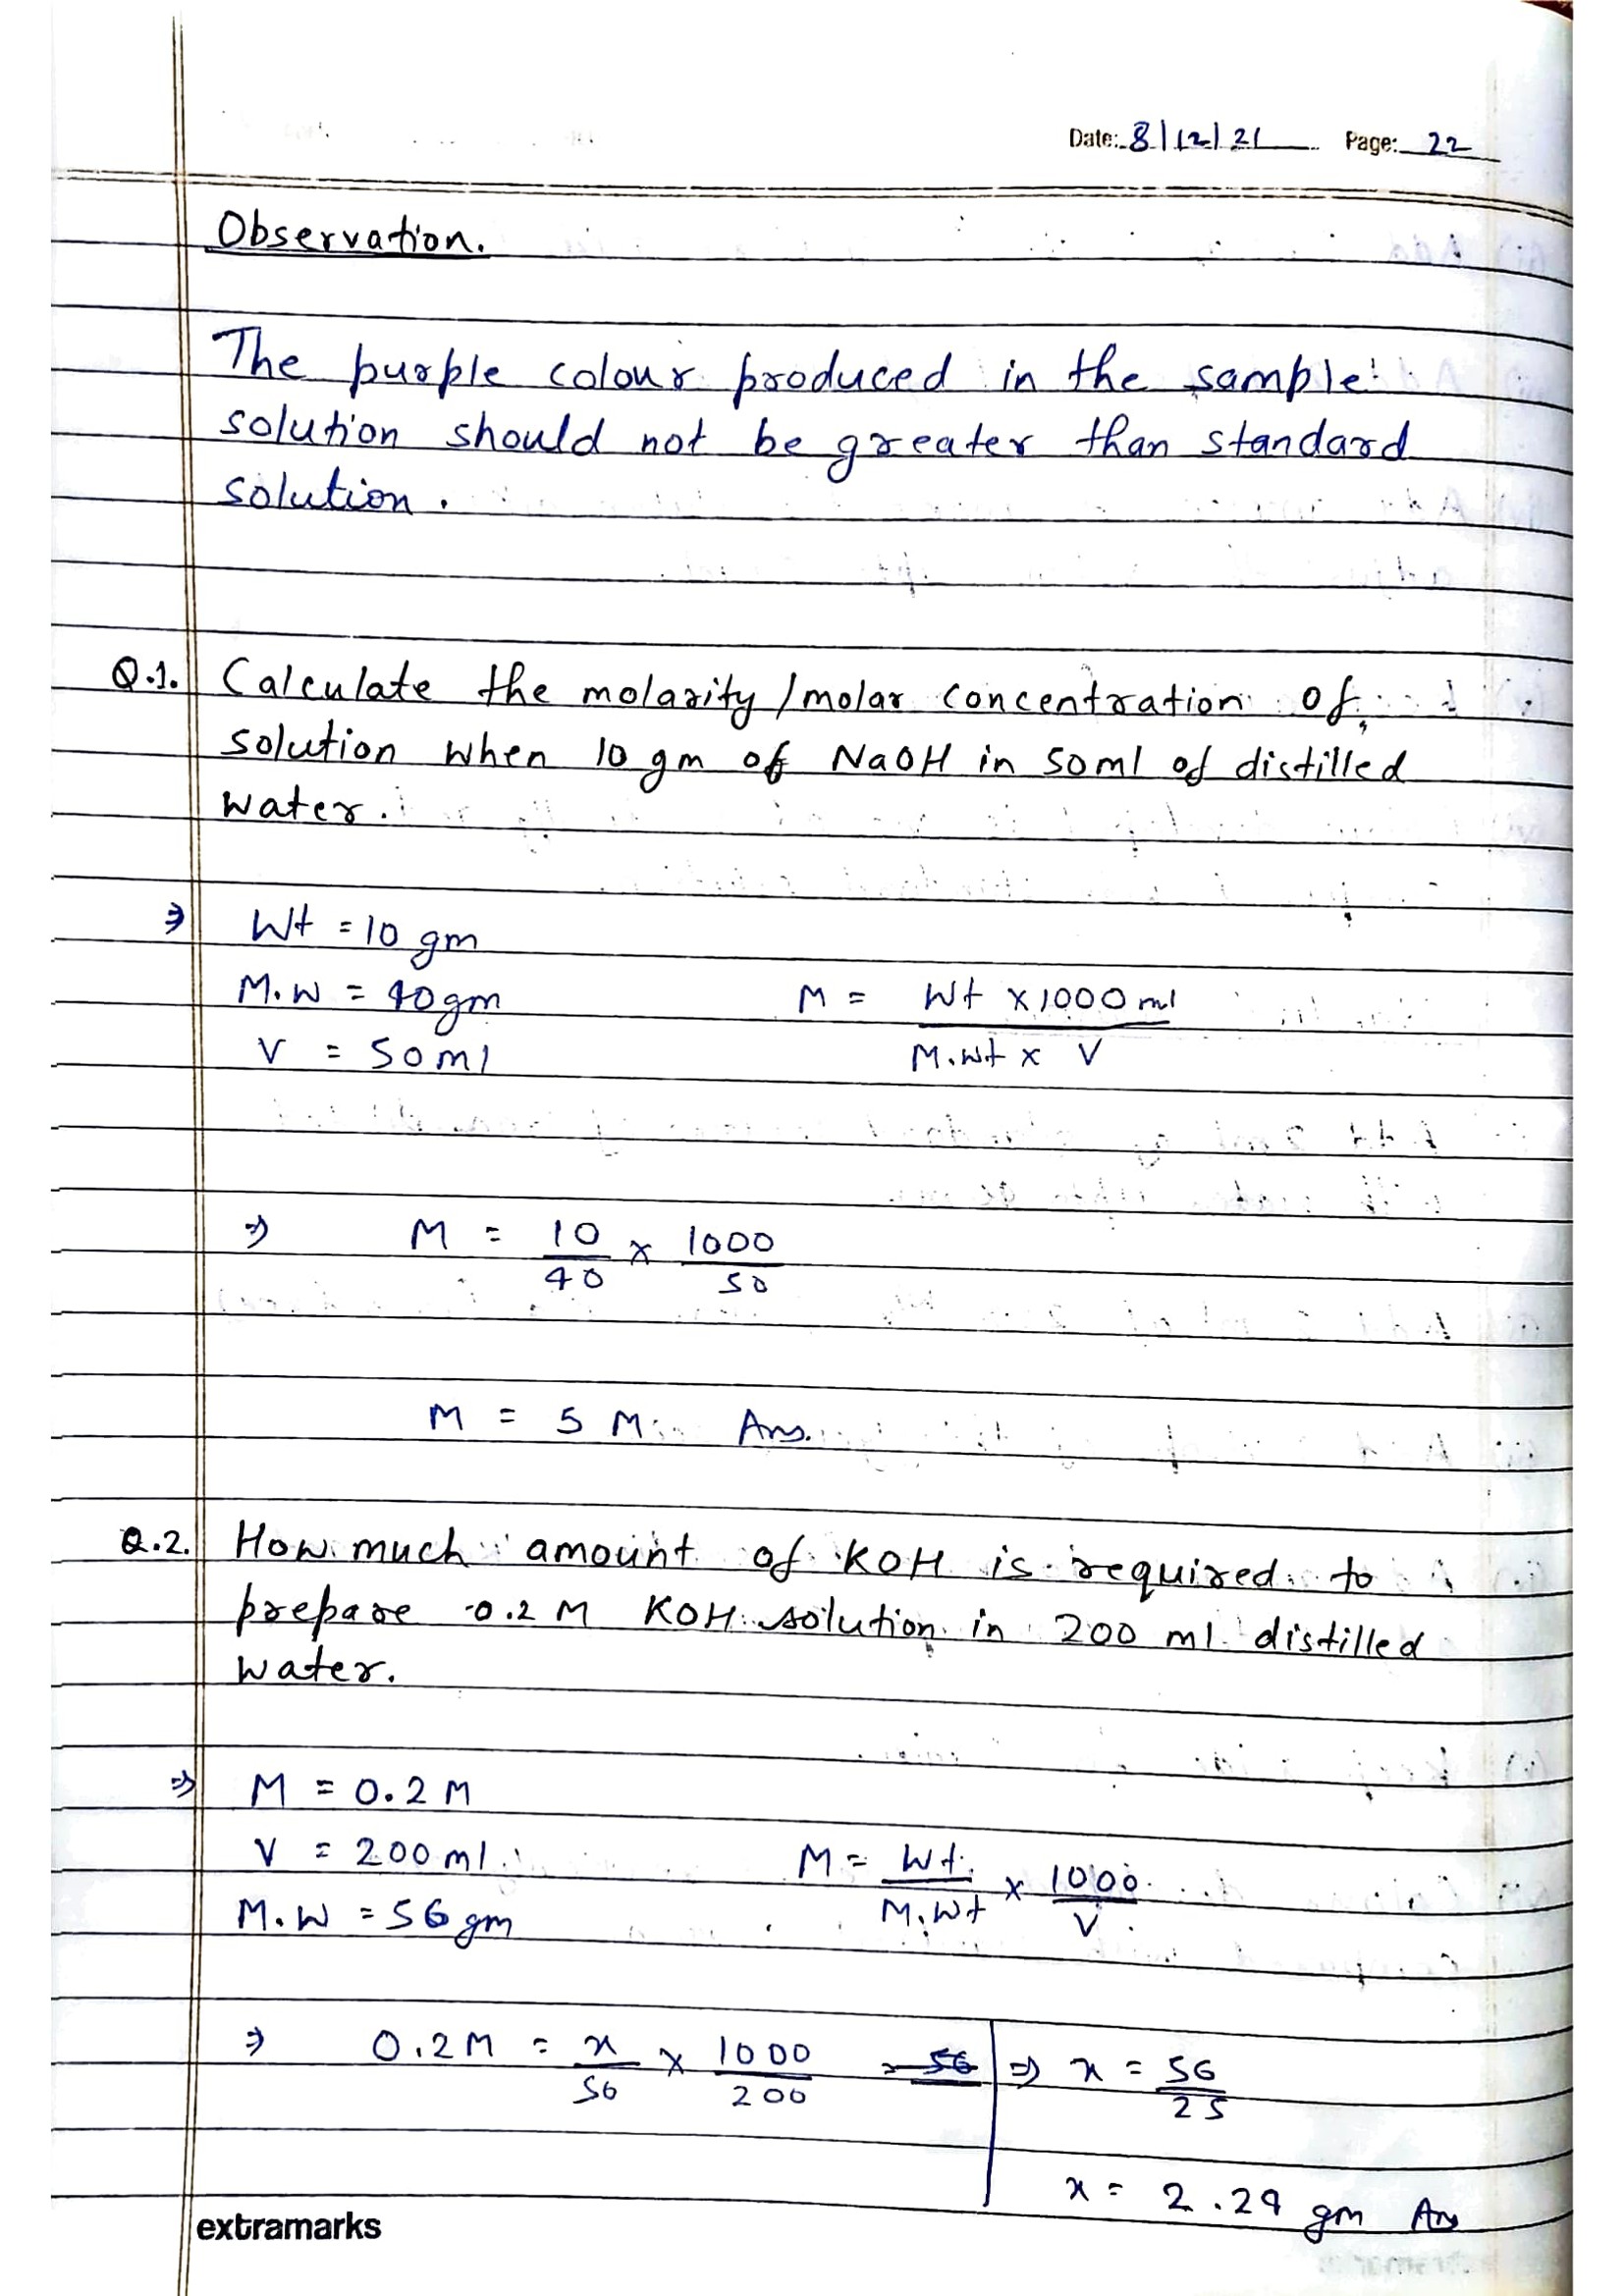 Date: 8/12/21 Page: 22
Observation.
The purple colour produced in the sample
solution should not be greater than standard
solution.
Q.1. Calculate the molarity/molar concentration of
solution when 10 gm of NaOH in 50ml of distilled
water.
⇒ Wt = 10 gm
M.W = 40gm M = Wt x 1000 ml / M.wt x V
V = 50ml
⇒ M = 10/40 x 1000/50
M = 5 M Ans.
Q.2. How much amount of KOH is required to
prepare 0.2 M KOH solution in 200 ml distilled
water.
⇒ M = 0.2 M
V = 200 ml M = Wt/M.Wt x 1000/V
M.W = 56 gm
⇒ 0.2 M = x/56 x 1000/200 = 56 ⇒ x = 56/25
x = 2.29 gm Ans
extramarks